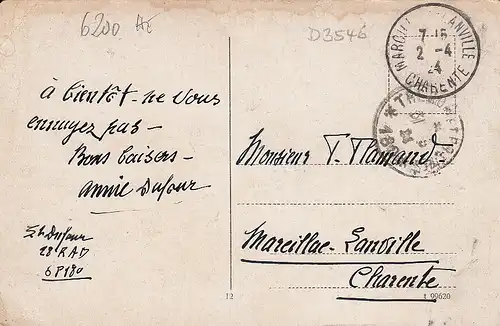 6200
D3546
MARCILLAC-LANVILLE
7-15
2 -4
24
CHARENTE
à bientôt - ne vous
ennuyez pas -
Bons baisers -
Annie Dufour
Dufour
28e RAD
6P180
Monsieur T. Flamand
Marcillac-Lanville
Charente
12
1 99620